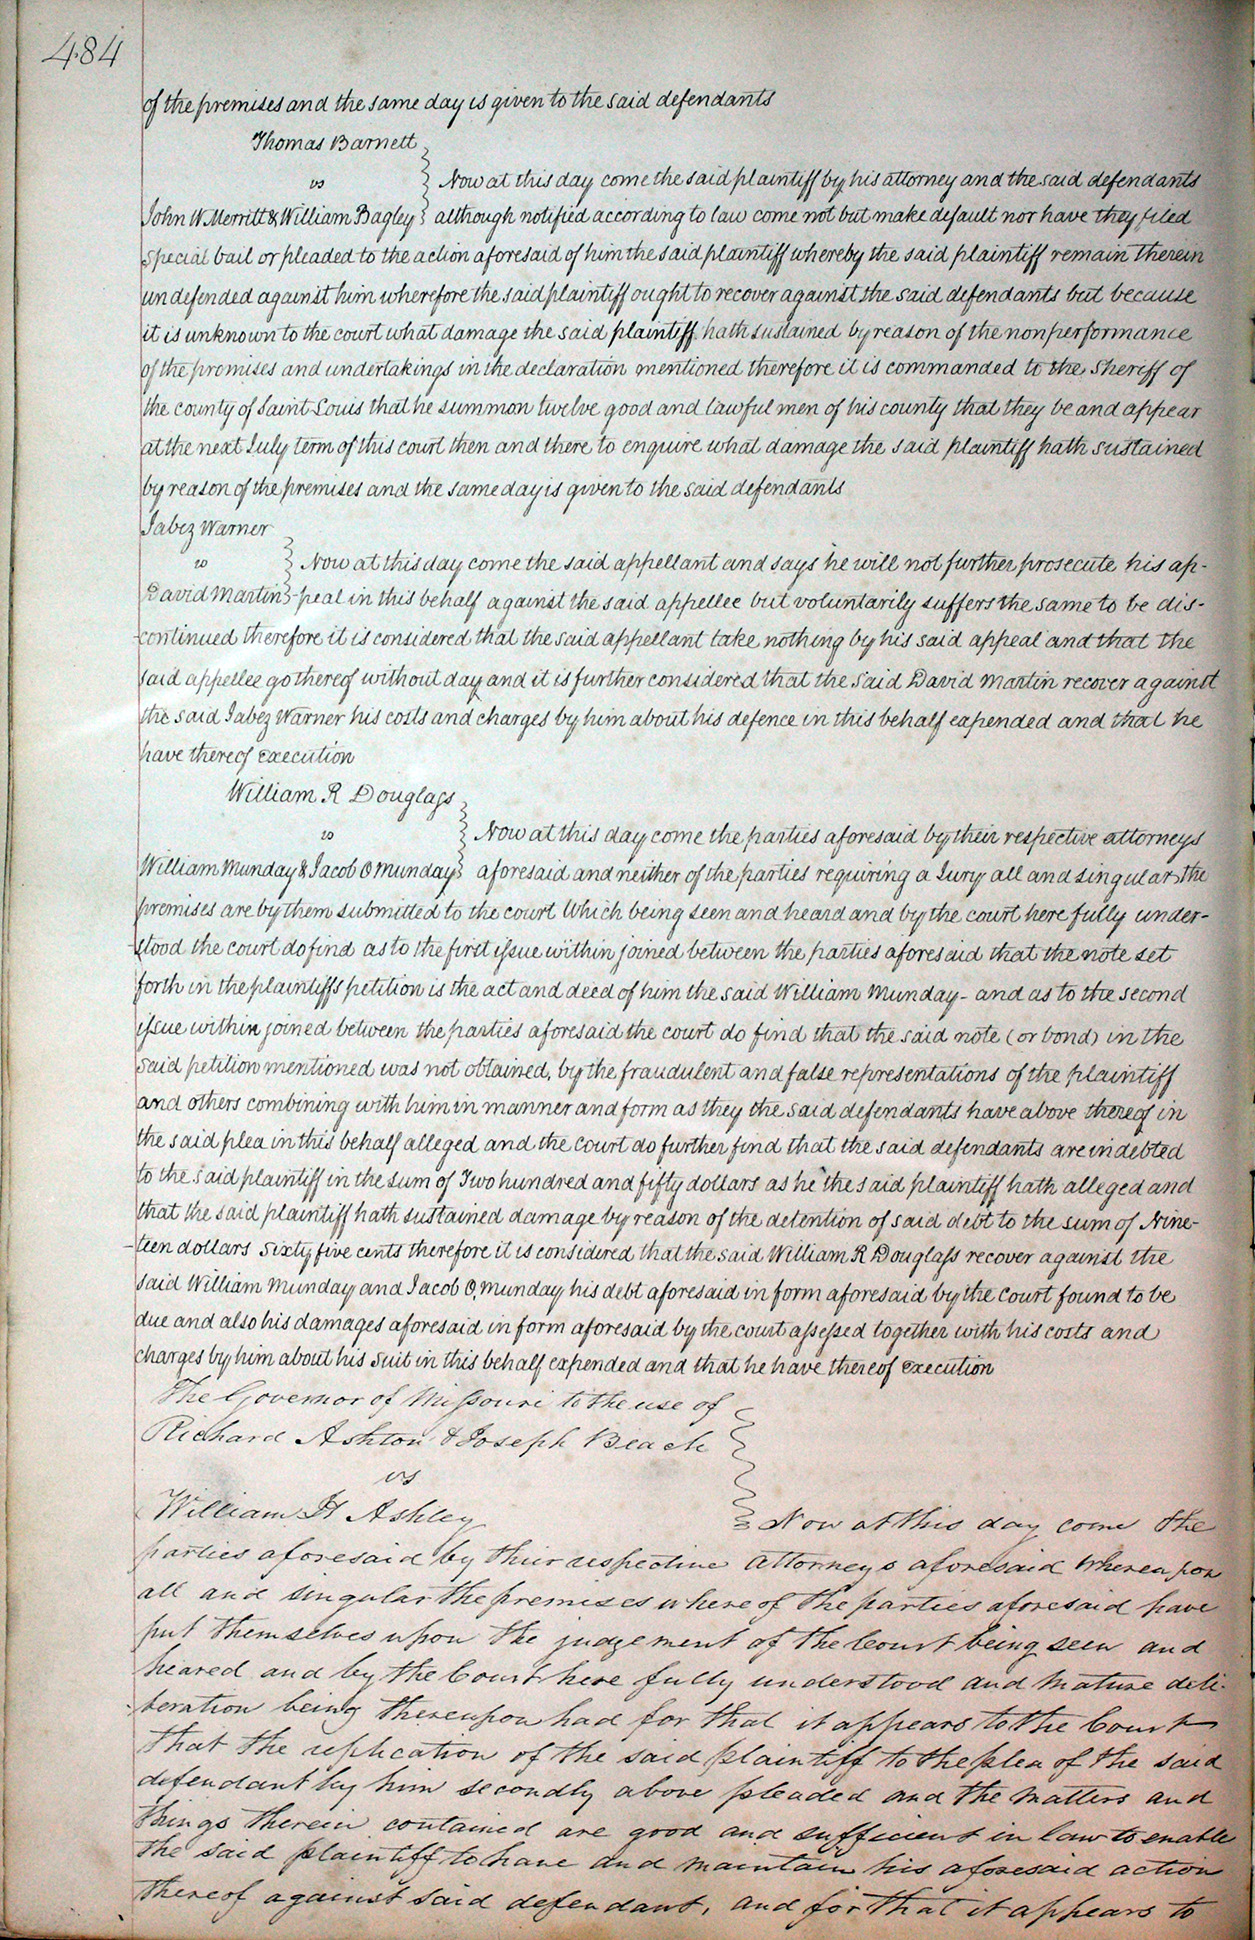 484
of the premises and the same day is given to the said defendants
Thomas Barnett
vs
Now at this day come the said plaintiff by his attorney and the said defendants
John W. Merritt & William Bagley although notified according to law come not but make default nor have they filed
special bail or pleaded to the action aforesaid of him the said plaintiff whereby the said plaintiff remain therein
undefended against him wherefore the said plaintiff ought to recover against the said defendants but because
it is unknown to the court what damage the said plaintiff hath sustained by reason of the nonperformance
of the promises and undertakings in the declaration mentioned therefore it is commanded to the Sheriff of
the county of Saint Louis that he summon twelve good and lawful men of his county that they be and appear
at the next July term of this court then and there to enquire what damage the said plaintiff hath sustained
by reason of the premises and the same day is given to the said defendants
Jabez Warner
vs
Now at this day come the said appellant and says he will not further prosecute his ap-
David Martin -peal in this behalf against the said appellee but voluntarily suffers the same to be dis-
-continued therefore it is considered that the said appellant take nothing by his said appeal and that the
said appellee go thereof without day and it is further considered that the said David Martin recover against
the said Jabez Warner his costs and charges by him about his defence in this behalf expended and that he
have thereof execution
William R Douglass
vs
Now at this day come the parties aforesaid by their respective attorneys
William Munday & Jacob O Munday aforesaid and neither of the parties requiring a Jury all and singular the
premises are by them submitted to the court Which being seen and heard and by the court here fully under-
-stood the court do find as to the first issue within joined between the parties aforesaid that the note set
forth in the plaintiffs petition is the act and deed of him the said William Munday - and as to the second
issue within joined between the parties aforesaid the court do find that the said note (or bond) in the
said petition mentioned was not obtained, by the fraudulent and false representations of the plaintiff
and others combining with him in manner and form as they the said defendants have above thereof in
the said plea in this behalf alleged and the court do further find that the said defendants are indebted
to the said plaintiff in the sum of Two hundred and fifty dollars as he the said plaintiff hath alleged and
that the said plaintiff hath sustained damage by reason of the detention of said debt to the sum of Nine-
-teen dollars Sixty five cents therefore it is considered that the said William R Douglass recover against the
said William Munday and Jacob O, Munday his debt aforesaid in form aforesaid by the court found to be
due and also his damages aforesaid in form aforesaid by the court assessed together with his costs and
charges by him about his suit in this behalf expended and that he have thereof execution
The Governor of Missouri to the use of
Richard Ashton & Joseph Beach
vs
William H Ashley Now at this day come the
parties aforesaid by their respective attorneys aforesaid whereupon
all and singular the premises whereof the parties aforesaid have
put themselves upon the judgement of the Court being seen and
heared and by the Court here fully understood and mature deli-
beration being thereupon had for that it appears to the Court
that the replication of the said plaintiff to the plea of the said
defendant by him secondly above pleaded and the matters and
things therein contained are good and sufficient in law to enable
the said plaintiff to have and maintain his aforesaid action
thereof against said defendant, and for that it appears to